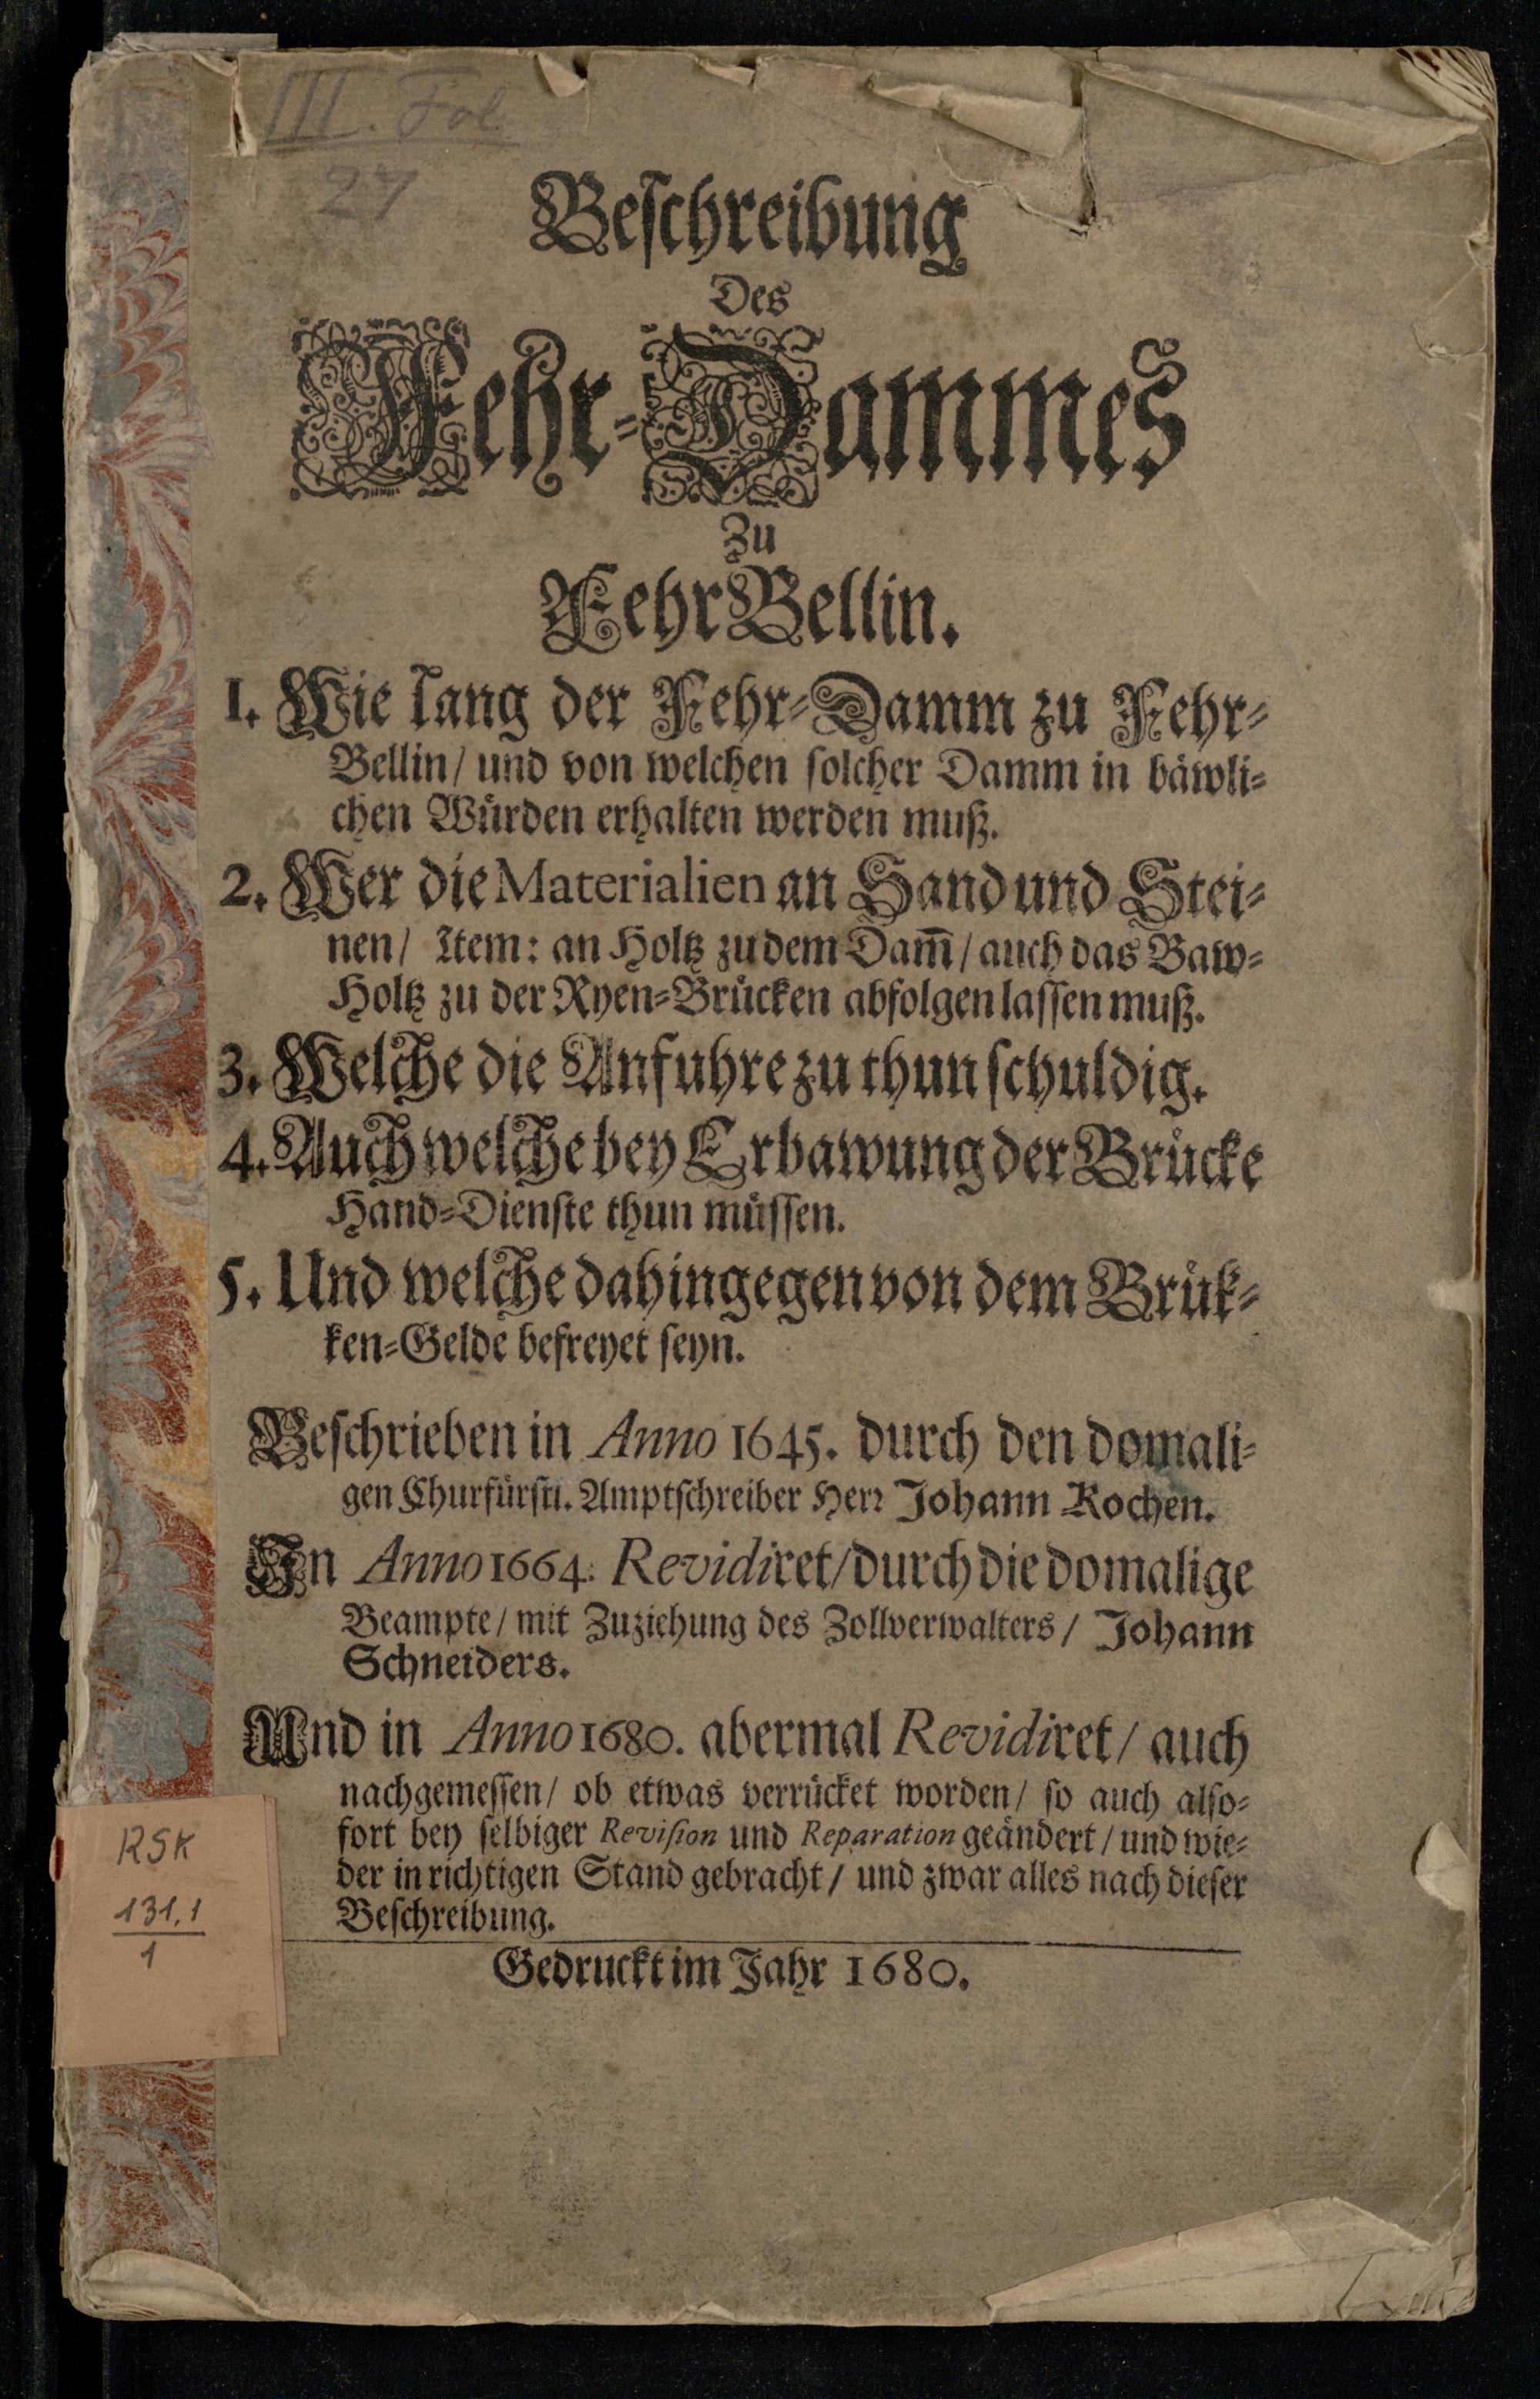 III. Fol.
27
Beschreibung
Des
Fehr-Dammes
Zu
FehrBellin.
1. Wie lang der Fehr-Damm zu Fehr-
Bellin/ und von welchen solcher Damm in bäwli-
chen Würden erhalten werden muß.
2. Wer die Materialien an Sand und Stei-
nen/ Item: an Holtz zu dem Dam̅/ auch das Baw-
Holtz zu der Ryen-Brücken abfolgen lassen muß.
3. Welche die Anfuhre zu thun schuldig.
4. Auch welche bey Erbawung der Brücke
Hand-Dienste thun müssen.
5. Und welche dahingegen von dem Brük-
ken-Gelde befreyet seyn.
Beschrieben in Anno 1645. durch den domali-
gen Churfürstl. Amptschreiber Herr Johann Kochen.
In Anno 1664. Revidiret/ durch die domalige
Beampte/ mit Zuziehung des Zollverwalters/ Johann
Schneiders.
Und in Anno 1680. abermal Revidiret/ auch
nachgemessen/ ob etwas verrücket worden/ so auch also-
fort bey selbiger Revision und Reparation geändert/ und wie-
der in richtigen Stand gebracht/ und zwar alles nach dieser
Beschreibung.
Gedruckt im Jahr 1680.
RSK
131,1
1